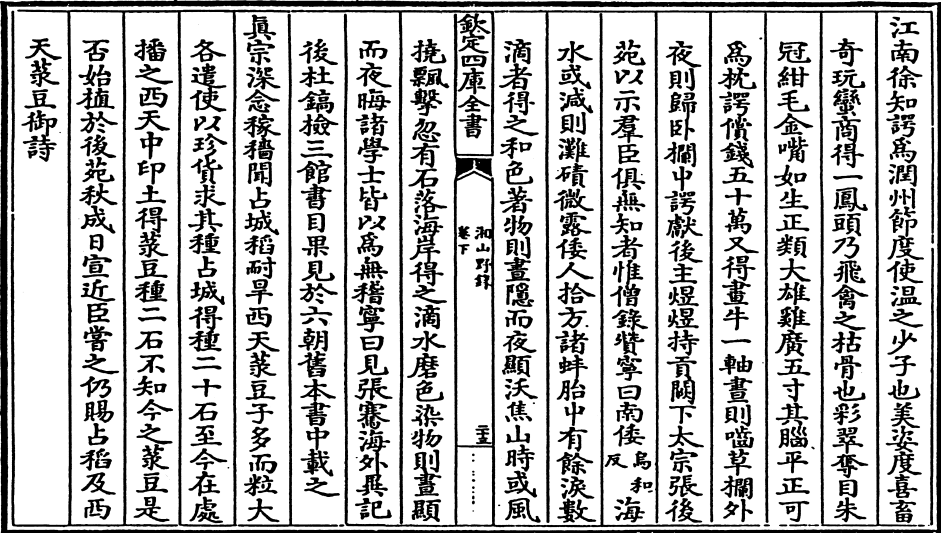 江南徐知諤為潤州節度使温之少子也美姿度喜畜
奇玩蠻商得一鳳頭乃飛禽之枯骨也彩翠奪目朱
冠紺毛金嘴如生正類大雄雞廣五寸其腦平正可
為枕諤償錢五十萬又得畫牛一軸晝則嚙草欄外
夜則歸卧欄中諤獻後主煜煜持貢闕下太宗張後
苑以示羣臣俱無知者惟僧錄贊寧曰南倭烏和反海
水或減則灘磧微露倭人拾方諸蚌胎中有餘淚數
滴者得之和色著物則晝隱而夜顯沃焦山時或風
欽定四庫全書
湘山野録
卷下
二十五
撓飄擊忽有石落海岸得之滴水磨色染物則晝顯
而夜晦諸學士皆以為無稽寧曰見張騫海外異記
後杜鎬檢三館書目果見於六朝舊本書中載之
真宗深念稼穡聞占城稻耐旱西天菉豆子多而粒大
各遣使以珍貨求其種占城得種二十石至今在處
播之西天中印土得菉豆種二石不知今之菉豆是
否始植於後苑秋成日宣近臣嘗之仍賜占稻及西
天菉豆御詩